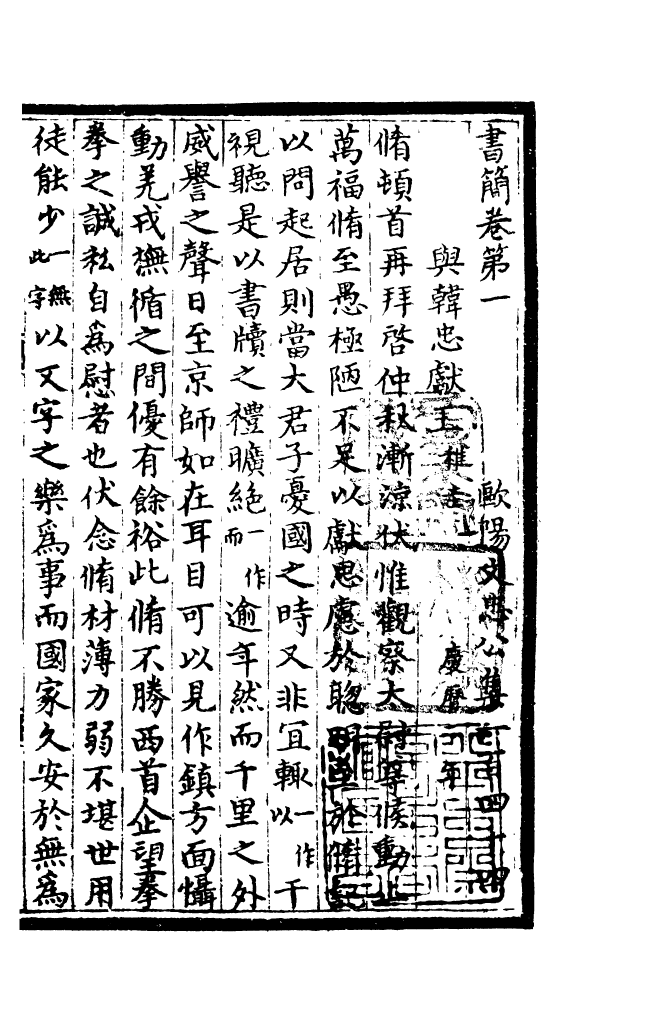 書簡卷第一　歐陽文忠公集一百四十四
與韓忠獻王 稚圭 慶曆 年
脩頓首再拜啓仲秋漸涼伏惟觀察太尉尊候動止
萬福脩至愚極陋不足以獻思慮於聰明至於脩記
以問起居則當大君子憂國之時又非宜輒一作以干
視聽是以書牘之禮曠絕一作而逾年然而千里之外
威譽之聲日至京師如在耳目可以見作鎮方面懾
動羌戎撫循之間優有餘裕此脩不勝西首企望拳
拳之誠私自為慰者也伏念脩材薄力弱不堪世用
徒能少一無此字以文字之樂為事而國家久安於無為